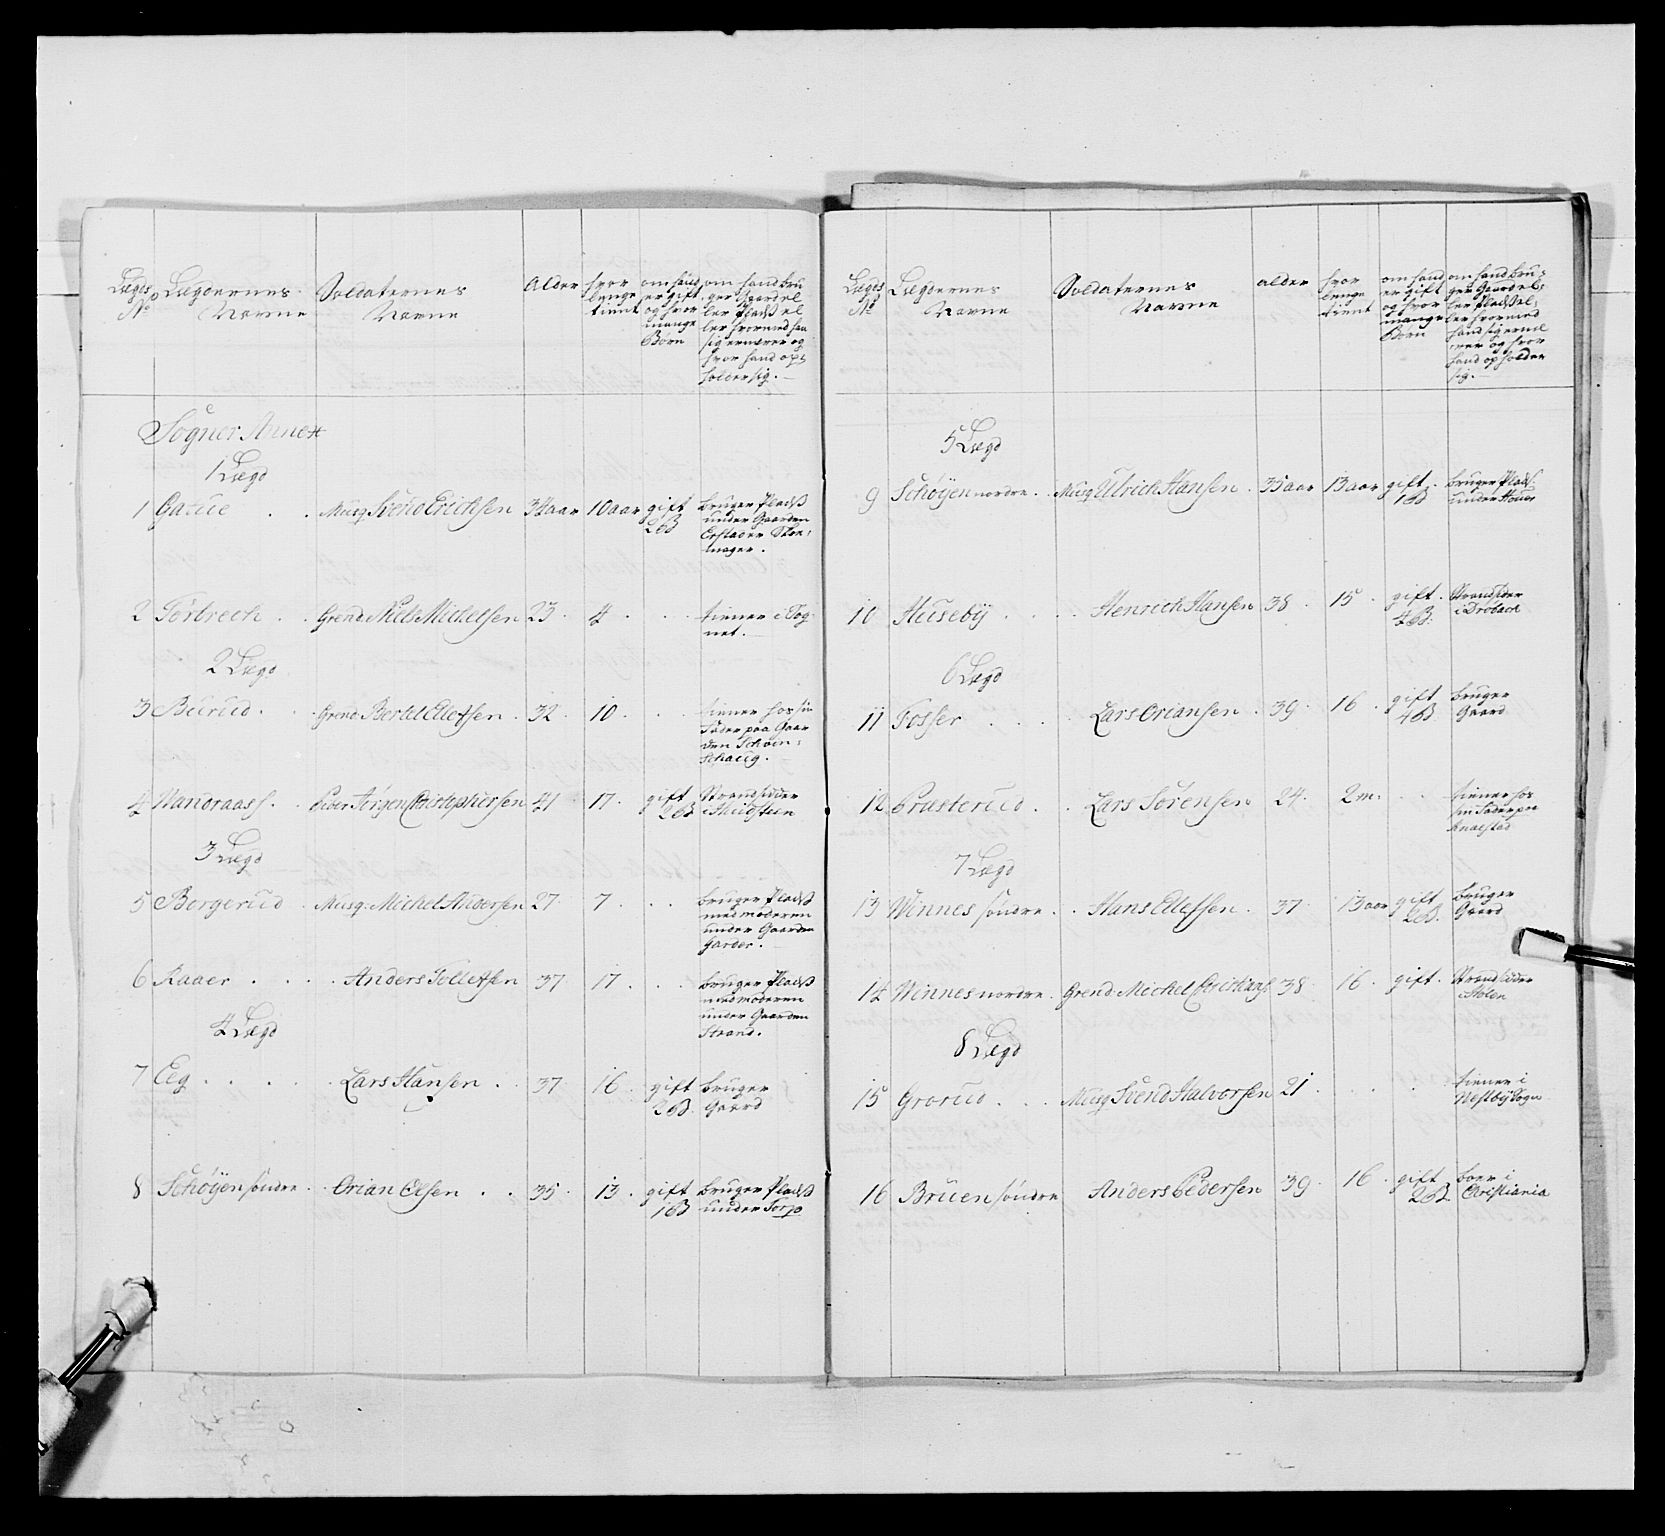 Lægds No
Lægdernes Navne
Soldaternes Navne
Alder
hvor lenge tient
om hand er gift og hvor mange Børn
om hand bru
ger Gaard el
ler Pladß el
ler hvormed han
sig ernærer og
hvor hand op
holder sig.
Sogner Annex
1 Lægd
1 Gatue . . Musq Svend Erichsen 34 aar 10 aar gift 2 B bruger Pladß
under Gaarden
Er Skoe:
mager.
2 Torbrech . . Grend Niels Michelsen 23. 4 . . . tiener i Sog
net.
2 Lægd
3 Burud . . . Grend Bertel Ellefsen . 32. 10. . . tiener hos sin
Fader paa Gaar
den Schou:
schaug.
4 Wandraass . . Jørgen Christophersen 41 17. gift 2 B Strandsidder
i
3 Lægd
5 Borgerud . Musq: Michel Andersen 27. 7 . . . bruger Pladß
med moderen
under Gaarden
Garder.
6 Raaer . . . . Anders Tollefsen 37 17 . . . bruger Pladß
med moderen
under Gaarden
Strand.
4 Lægd
7 Eeg . . . . . Lars Hansen . . 37 16. gift 2 B. bruger
Gaard
8 Schøyen søndre . Orian Elsen . . 35. 13. gift 1 B bruger Pladß
under Torp
Lægds No
Lægdernes Navne
Soldaternes Navne
alder
hvor lenge tient
om hand er gift og hvor mange Børn
om hand bru:
ger Gaard el:
ler Pladß el:
ler hvormed
hand sig ernæ
rer og hvor
hand opholder
sig.
5 Lægd
9 Schøyen nordre . . Musq Ulrich Hansen . 35 aar 13 aar gift. 1 B bruger Plads
under Houer
10 Huseby . . . . Henrich Hansen 38. 15. gift. 4 B. Strandsider
i Drøbach
6 Lægd
11 Fosser . . . . Lars Oriansen . 39. 16. gift 4 B bruger
Gaard
12 Prusterud . . Lars Sørensen 24. 2 m. . . tiener hos
sin Fader paa
Knaestad
7 Lægd
13 Winnes søndre . . Hans Ellefsen . 37. 13 aar gift 2 B. bruger
Gaard
14 Winnes nordre . Grend Michel Christians. 38. 16. gift. Strandsidder
i Hølen
8 Lægd
15 Grorud . . . Musq Svend Halvorsen 21. . . . tiener i
Nestby Sogn
16 Bruen søndre Anders Pedersen 39. 16. gift 2 B. boer i
Christiania